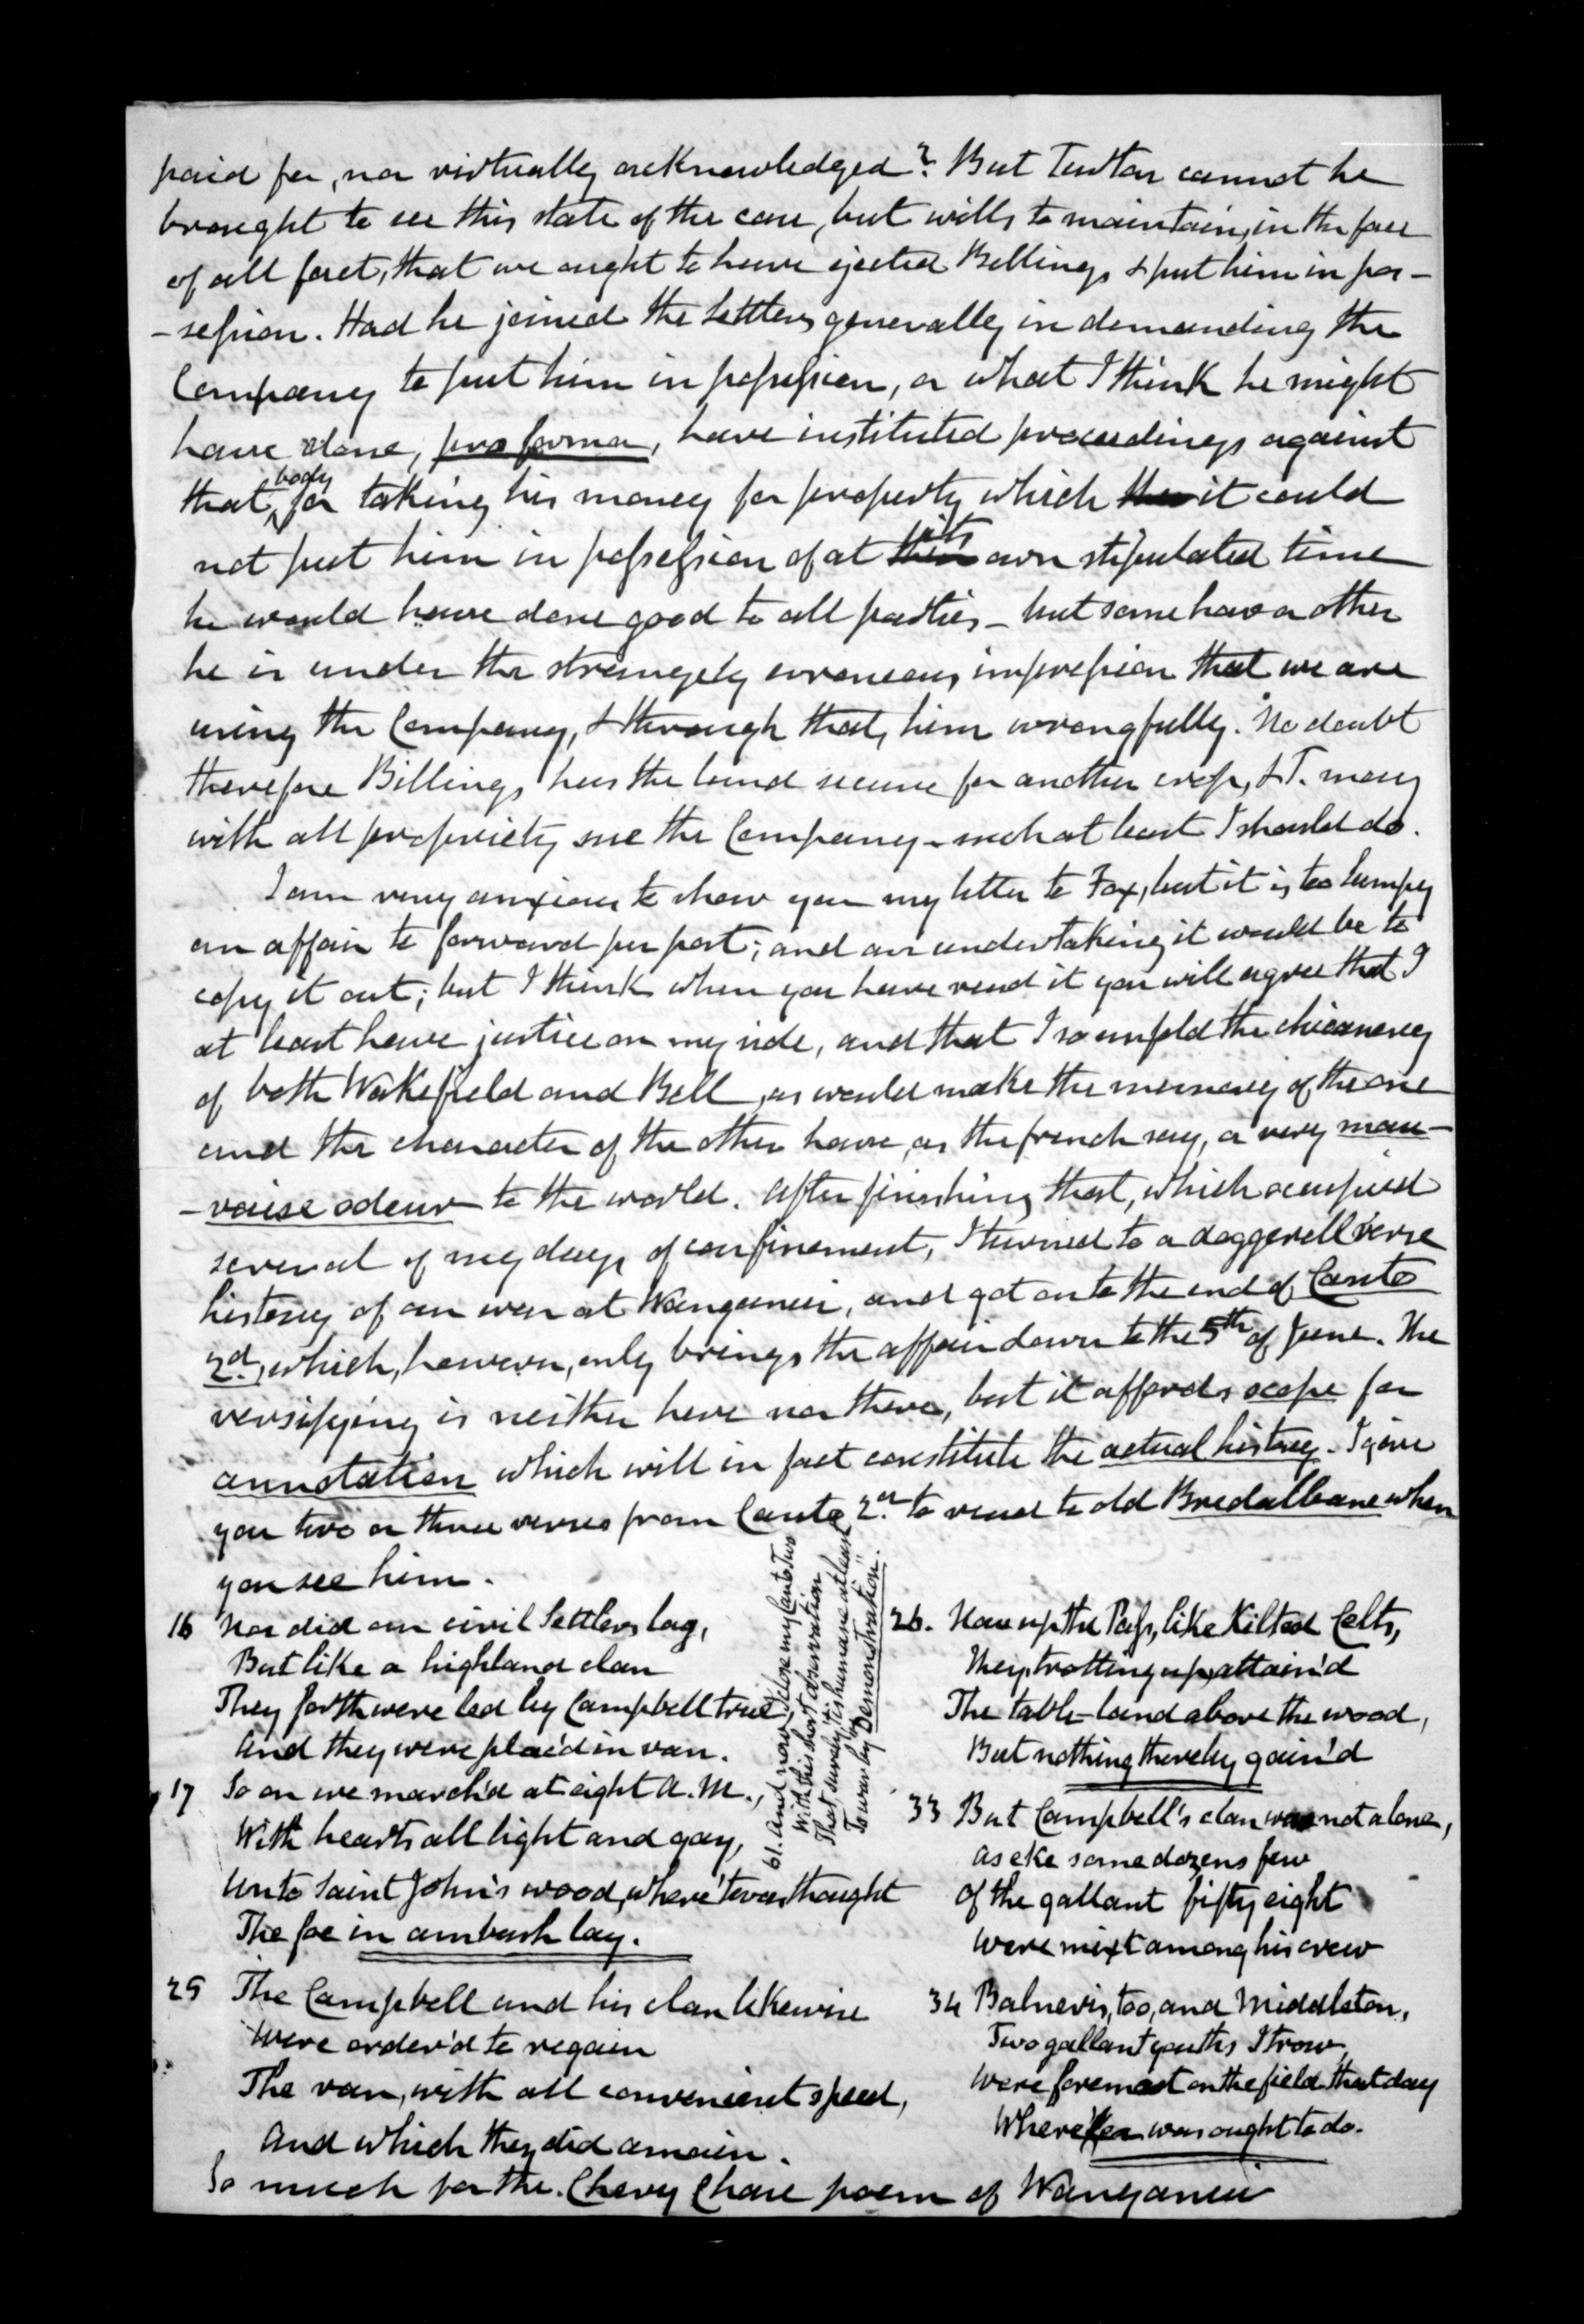 paid for, nor virtually acknowledged? But Tewtor cannot be
brought to see this state of the case, but wills to maintain, in the face
of all fact, that we ought to have ejected Billings & put him in pos-
-session. Had he joined the Settlers generally in demanding the
Company to put him in possession, or what I think he might
have done, pro forma, have instituted proceedings against
that body for taking his money for property which the it could
not put him in possession of at their its own stipulated time
he would have done good to all parties - but some how or other
he is under the strangely erroneous impression that we are
using the Company, & through that, him wrongfully. No doubt
therefore Billings has the land secure for another crop, & T. may
with all propriety sue the Company - such at least I should do.
I am very anxious to show you my letter to Fox, but it is too lumpy
an affair to forward per post; and an undertaking it would be to
copy it out; but I think when you have read it you will agree that I
at least have justice on my side, and that I so unfold the chicanery
of both Wakefield and Bell, as would make the memory of the one
and the character of the other have, as the french say, a very mau-
-vaise odeur to the world. After finishing that, which occupied
several of my days of confinement, I turned to a doggerell verse
history of our war at Wanganui, and got on to the end of Canto
2d., which, however, only brings the affair down to the 5th of June. The
versifying is neither here nor there, but it affords scope for
annotation which will in fact constitute the actual history. I give
you two or three verses from Canto 2d. to read to old Bredalbane when
you see him.
16 Nor did our civil Settlers lag,
But like a highland clan
They forth were led by Campbell true,
And they were plac'd in van.
17 So on we march'd at eight A.M.,
With hearts all light and gay,
Unto Saint John's wood, where 'twas thought
The foe in ambush lay.
25 The Campbell and his clan likewise
Were order'd to regain
The van, with all convenient speed,
And which they did amain.
61. And now I close my Canto Two
With this short observation
That, surely, 'tis humane at least
To war by "Demonstration".
26. Now up the Pass, like Kilted Celts,
They, trotting up, attain'd
The table-land above the wood,
But nothing thereby gain'd
33 But Campbell's clan was not alone,
As eke some dozens few
Of the gallant fifty eight
Were mixt among his crew
34 Balnevis, too, and Middleton,
Two gallant youths I trow,
Were foremost on the field that day
Where'er was ought to do.
So much for the Chevy Chase poem of Wanganui